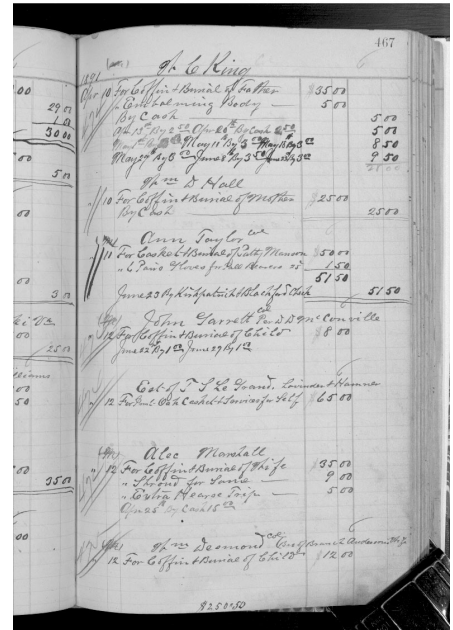 467
1891
W C King
Apr 10 For Coffin & Burial of Father $35 00
" Embalming Body 5 00
By Cash 5 00
Apr 15th By 2 50 Apr 20th By Cash 2 50 5 00
May 11th By 3 00 8 50
May 29th By 3 00 June 8th By 3 50 June 23 By 3 00 9 50
Wm D Hall
10 For Coffin & Burial of Mother $25 00
By Cash 25 00
Ann Taylor Col
11 For Casket & Burial of Patsy $50 00
" 6 Pairs Gloves for Pall Bearers 25 1 50
51 50
June 23 By Kirkpatrick & Blackford Check 51 50
John Garrett Col Per D D McConville
12 For Coffin & Burial of Child $8 00
June 22 By 1 00 June 29 By 1 00
Est of T S Le Grand.
12 For Casket & Services for Self $65 00
Alec Marshall
12 For Coffin & Burial of Wife $35 00
" Shroud for Same 9 00
" Extra Hearse Trip 5 00
By Cash 15 00
Wm Desmond Col
12 For Coffin & Burial of Child $12 00
$250.50
29 00
30 00
5 00
3 00
25 00
35 00